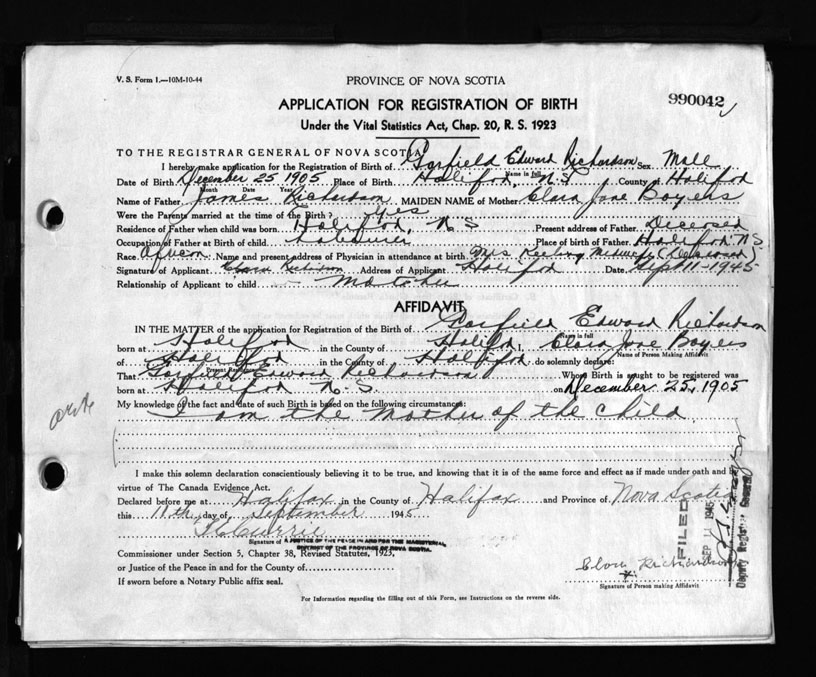 V. S. Form 1.—10M-10-44
PROVINCE OF NOVA SCOTIA
990042
APPLICATION FOR REGISTRATION OF BIRTH
Under the Vital Statistics Act, Chap. 20, R. S. 1923
TO THE REGISTRAR GENERAL OF NOVA SCOTIA
I hereby make application for the Registration of Birth of Garfield Edward Richardson Sex Male
Name in full
Date of Birth December 25 1905 Place of Birth Halifax, N S County Halifax
Month Date Year
Name of Father James Richardson MAIDEN NAME of Mother Clara Jane Boyers
Were the Parents married at the time of the Birth? Yes
Residence of Father when child was born Halifax, N S Present address of Father Deceased
Occupation of Father at Birth of child Labourer Place of birth of Father Halifax N S.
Race African Name and present address of Physician in attendance at birth Mrs Keeling Midwife (Deceased)
Signature of Applicant Clara Richardson Address of Applicant Halifax Date Sept 11-1945
Relationship of Applicant to child Mother
AFFIDAVIT
IN THE MATTER of the application for Registration of the Birth of Garfield Edward Richardson
Name in full
born at Halifax in the County of Halifax, Clara Jane Boyers
Name of Person Making Affidavit
of Halifax in the County of Halifax do solemnly declare:
Present Residence
That Garfield Edward Richardson Whose Birth is sought to be registered was
born at Halifax N. S. on December 25, 1905
My knowledge of the fact and date of such Birth is based on the following circumstances:
I am the Mother of the Child
I make this solemn declaration conscientiously believing it to be true, and knowing that it is of the same force and effect as if made under oath and by
virtue of The Canada Evidence Act.
Declared before me at Halifax in the County of Halifax and Province of Nova Scotia
this 11th day of September 1945
Signature of A JUSTICE OF THE PEACE IN AND FOR THE MAGISTERIAL
DISTRICT OF THE PROVINCE OF NOVA SCOTIA.
Commissioner under Section 5, Chapter 38, Revised Statutes, 1923,
or Justice of the Peace in and for the County of
If sworn before a Notary Public affix seal.
Clara Richardson
Signature of Person making Affidavit
FILED
SEP 1945
Deputy Registrar General
For Information regarding the filling out of this Form, see Instructions on the reverse side.